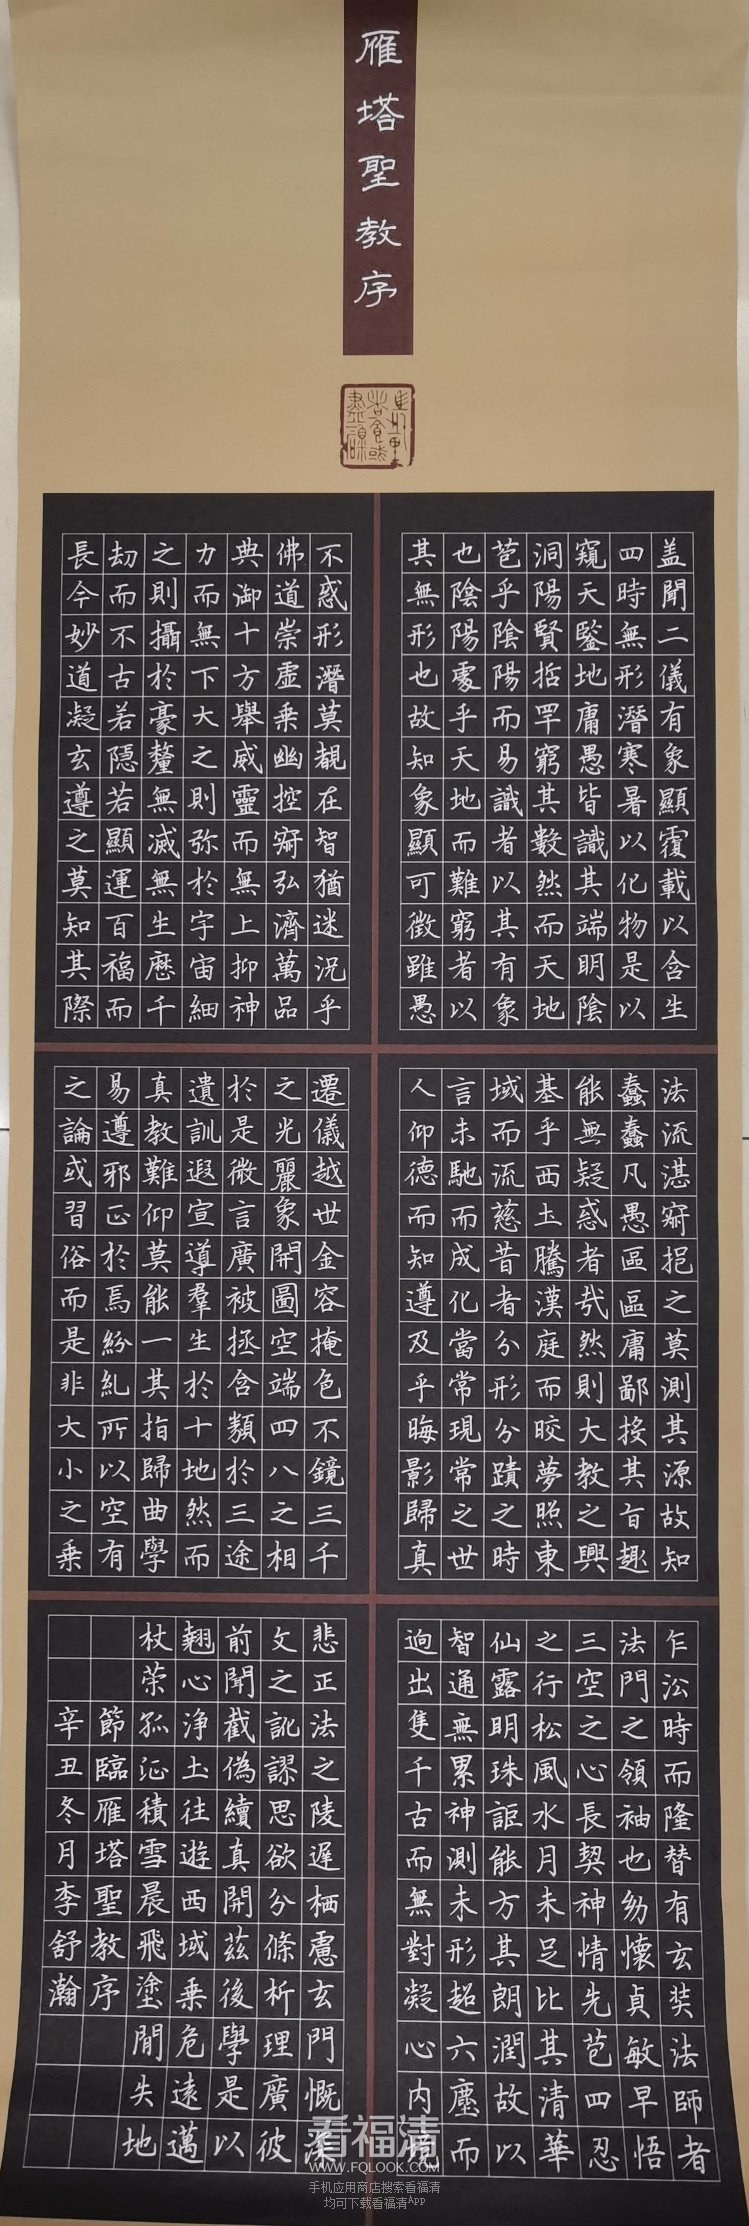 雁塔聖教序
盖聞二儀有象顯覆載以含生
四時無形潛寒暑以化物是以
窺天鑒地庸愚皆識其端明陰
洞陽賢哲罕窮其數然而天地
苞乎陰陽而易識者以其有象
也陰陽處乎天地而難窮者以
其無形也故知象顯可徵雖愚
不惑形潛莫覩在智猶迷況乎
佛道崇虛乘幽控寂弘濟萬品
典御十方舉威靈而無上抑神
力而無下大之則弥於宇宙細
之則攝於豪釐無滅無生歷千
劫而不古若隱若顯運百福而
長今妙道凝玄遵之莫知其際
法流湛寂挹之莫測其源故知
蠢蠢凡愚區區庸鄙投其旨趣
能無疑惑者哉然則大教之興
基乎西土騰漢庭而皎夢照東
域而流慈昔者分形分蹟之時
言未馳而成化當常現常之世
人仰德而知遵及乎晦影歸真
遷儀越世金容掩色不鏡三千
之光麗象開圖空端四八之相
於是微言廣被拯含類於三途
遺訓遐宣導羣生於十地然而
真教難仰莫能一其指歸曲學
易遵邪正於焉紛糺所以空有
之論或習俗而是非大小之乘
乍沿時而隆替有玄奘法師者
法門之領袖也幼懷貞敏早悟
三空之心長契神情先苞四忍
之行松風水月未足比其清華
仙露明珠詎能方其朗潤故以
智通無累神測未形超六塵而
逈出隻千古而無對凝心內境
悲正法之陵遲栖慮玄門慨深
文之訛謬思欲分條析理廣彼
前聞截偽續真開茲後學是以
翹心淨土往遊西域乘危遠邁
杖策孤征積雪晨飛塗間失地
節臨雁塔聖教序
辛丑冬月李舒瀚
看福清
WWW.FQLOOK.COM
手机应用商店搜索看福清
均可下载看福清App